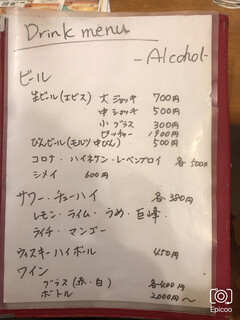 Drink menu
-Alcohol-
ビール
生ビール(エビス) 大ジョッキ 700円
中ジョッキ 500円
小グラス 300円
ピッチャー 1900円
びんビール(モルツ中びん) 500円
コロナ・ハイネケン・レーベンブロイ 各500円
シメイ 600円
サワー・チューハイ 各380円
レモン・ライム・うめ・巨峰・
ライチ・マンゴー
ウィスキーハイボール 450円
ワイン
グラス(赤・白) 各400円
ボトル 2,000円〜
Epicoo